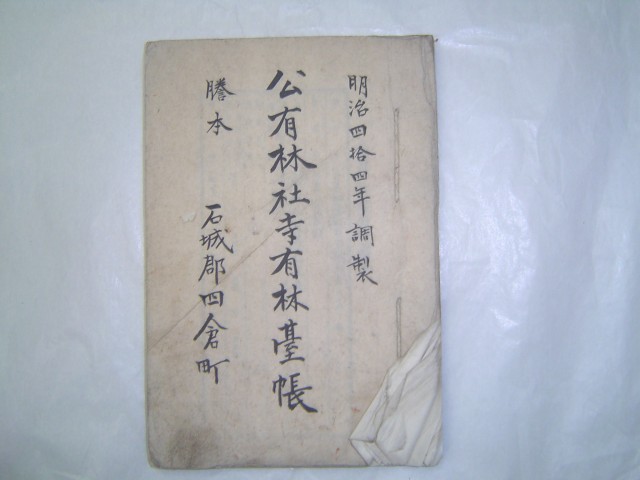 明治四拾四年調製
公有林社寺有林臺帳
謄本 石城郡四倉町